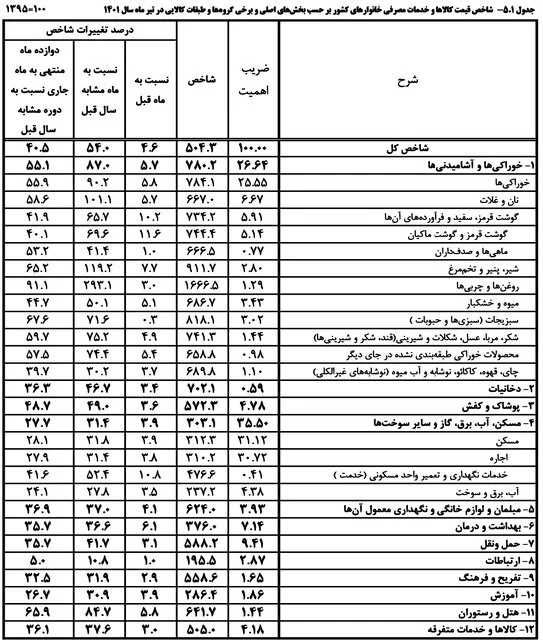 جدول ۵.۱- شاخص قیمت کالاها و خدمات مصرفی خانوارهای کشور بر حسب بخش‌های اصلی و برخی گروه‌ها و طبقات کالایی در تیر ماه سال ۱۴۰۱ ۱۳۹۵=۱۰۰
شرح ضریب اهمیت شاخص درصد تغییرات شاخص
نسبت به ماه قبل نسبت به ماه مشابه سال قبل دوازده ماه منتهی به ماه جاری نسبت به دوره مشابه سال قبل
شاخص کل ۱۰۰.۰۰ ۵۰۴.۳ ۴.۶ ۵۴.۰ ۴۰.۵
۱- خوراکی‌ها و آشامیدنی‌ها ۲۶.۶۴ ۷۸۰.۲ ۵.۷ ۸۷.۰ ۵۵.۱
خوراکی‌ها ۲۵.۵۵ ۷۸۴.۱ ۵.۸ ۹۰.۲ ۵۵.۹
نان و غلات ۶.۶۷ ۶۶۷.۰ ۵.۷ ۱۰۱.۱ ۵۸.۶
گوشت قرمز، سفید و فرآورده‌های آن‌ها ۵.۹۱ ۷۳۴.۲ ۱۰.۲ ۶۵.۷ ۴۱.۹
گوشت قرمز و گوشت ماکیان ۵.۱۴ ۷۴۴.۴ ۱۱.۶ ۶۹.۶ ۴۰.۱
ماهی‌ها و صدف‌داران ۰.۷۷ ۶۶۶.۵ ۱.۰ ۴۱.۴ ۵۳.۲
شیر، پنیر و تخم‌مرغ ۲.۸۰ ۹۱۱.۷ ۷.۷ ۱۱۹.۲ ۶۵.۲
روغن‌ها و چربی‌ها ۱.۲۹ ۱۶۶۶.۵ ۳.۰ ۲۹۳.۱ ۹۱.۱
میوه و خشکبار ۳.۴۳ ۶۸۶.۷ ۵.۱ ۵۰.۱ ۴۴.۷
سبزیجات (سبزی‌ها و حبوبات) ۳.۰۲ ۸۱۸.۱ ۰.۳ ۷۱.۶ ۶۷.۶
شکر، مربا، عسل، شکلات و شیرینی(قند، شکر و شیرینی‌ها) ۱.۴۴ ۷۴۱.۳ ۴.۹ ۷۵.۲ ۵۹.۷
محصولات خوراکی طبقه‌بندی نشده در جای دیگر ۰.۹۸ ۶۵۸.۸ ۵.۴ ۷۴.۴ ۵۷.۵
چای، قهوه، کاکائو، نوشابه و آب میوه (نوشابه‌های غیرالکلی) ۱.۱۰ ۶۸۹.۸ ۳.۷ ۳۰.۲ ۳۹.۷
۲- دخانیات ۰.۵۹ ۷۰۲.۱ ۳.۴ ۴۶.۷ ۳۶.۳
۳- پوشاک و کفش ۴.۷۸ ۵۷۲.۳ ۳.۶ ۴۹.۰ ۴۸.۷
۴- مسکن، آب، برق، گاز و سایر سوخت‌ها ۳۵.۵۰ ۳۰۳.۱ ۳.۹ ۳۱.۴ ۲۷.۷
مسکن ۳۱.۱۲ ۳۱۲.۳ ۳.۹ ۳۱.۸ ۲۸.۱
اجاره ۳۰.۷۲ ۳۱۰.۲ ۳.۸ ۳۱.۴ ۲۷.۹
خدمات نگهداری و تعمیر واحد مسکونی (خدمت) ۰.۴۱ ۴۷۶.۶ ۱۰.۸ ۵۲.۴ ۴۱.۶
آب، برق و سوخت ۴.۳۸ ۲۳۷.۲ ۳.۵ ۲۷.۸ ۲۴.۱
۵- مبلمان و لوازم خانگی و نگهداری معمول آن‌ها ۳.۹۳ ۶۲۴.۰ ۴.۱ ۳۷.۰ ۳۶.۹
۶- بهداشت و درمان ۷.۱۴ ۳۷۶.۰ ۶.۱ ۳۶.۶ ۳۵.۷
۷- حمل ونقل ۹.۴۱ ۵۸۸.۲ ۳.۱ ۴۱.۷ ۳۵.۷
۸- ارتباطات ۲.۸۷ ۱۹۵.۵ ۱.۰ ۱۰.۸ ۵.۰
۹- تفریح و فرهنگ ۱.۶۵ ۵۵۸.۶ ۲.۹ ۳۱.۹ ۳۲.۵
۱۰- آموزش ۱.۸۶ ۲۸۶.۴ ۳.۹ ۳۰.۹ ۲۶.۷
۱۱- هتل و رستوران ۱.۴۴ ۶۴۱.۷ ۵.۸ ۸۴.۷ ۶۵.۹
۱۲- کالاها و خدمات متفرقه ۴.۱۸ ۵۰۵.۰ ۳.۰ ۳۷.۶ ۳۶.۱